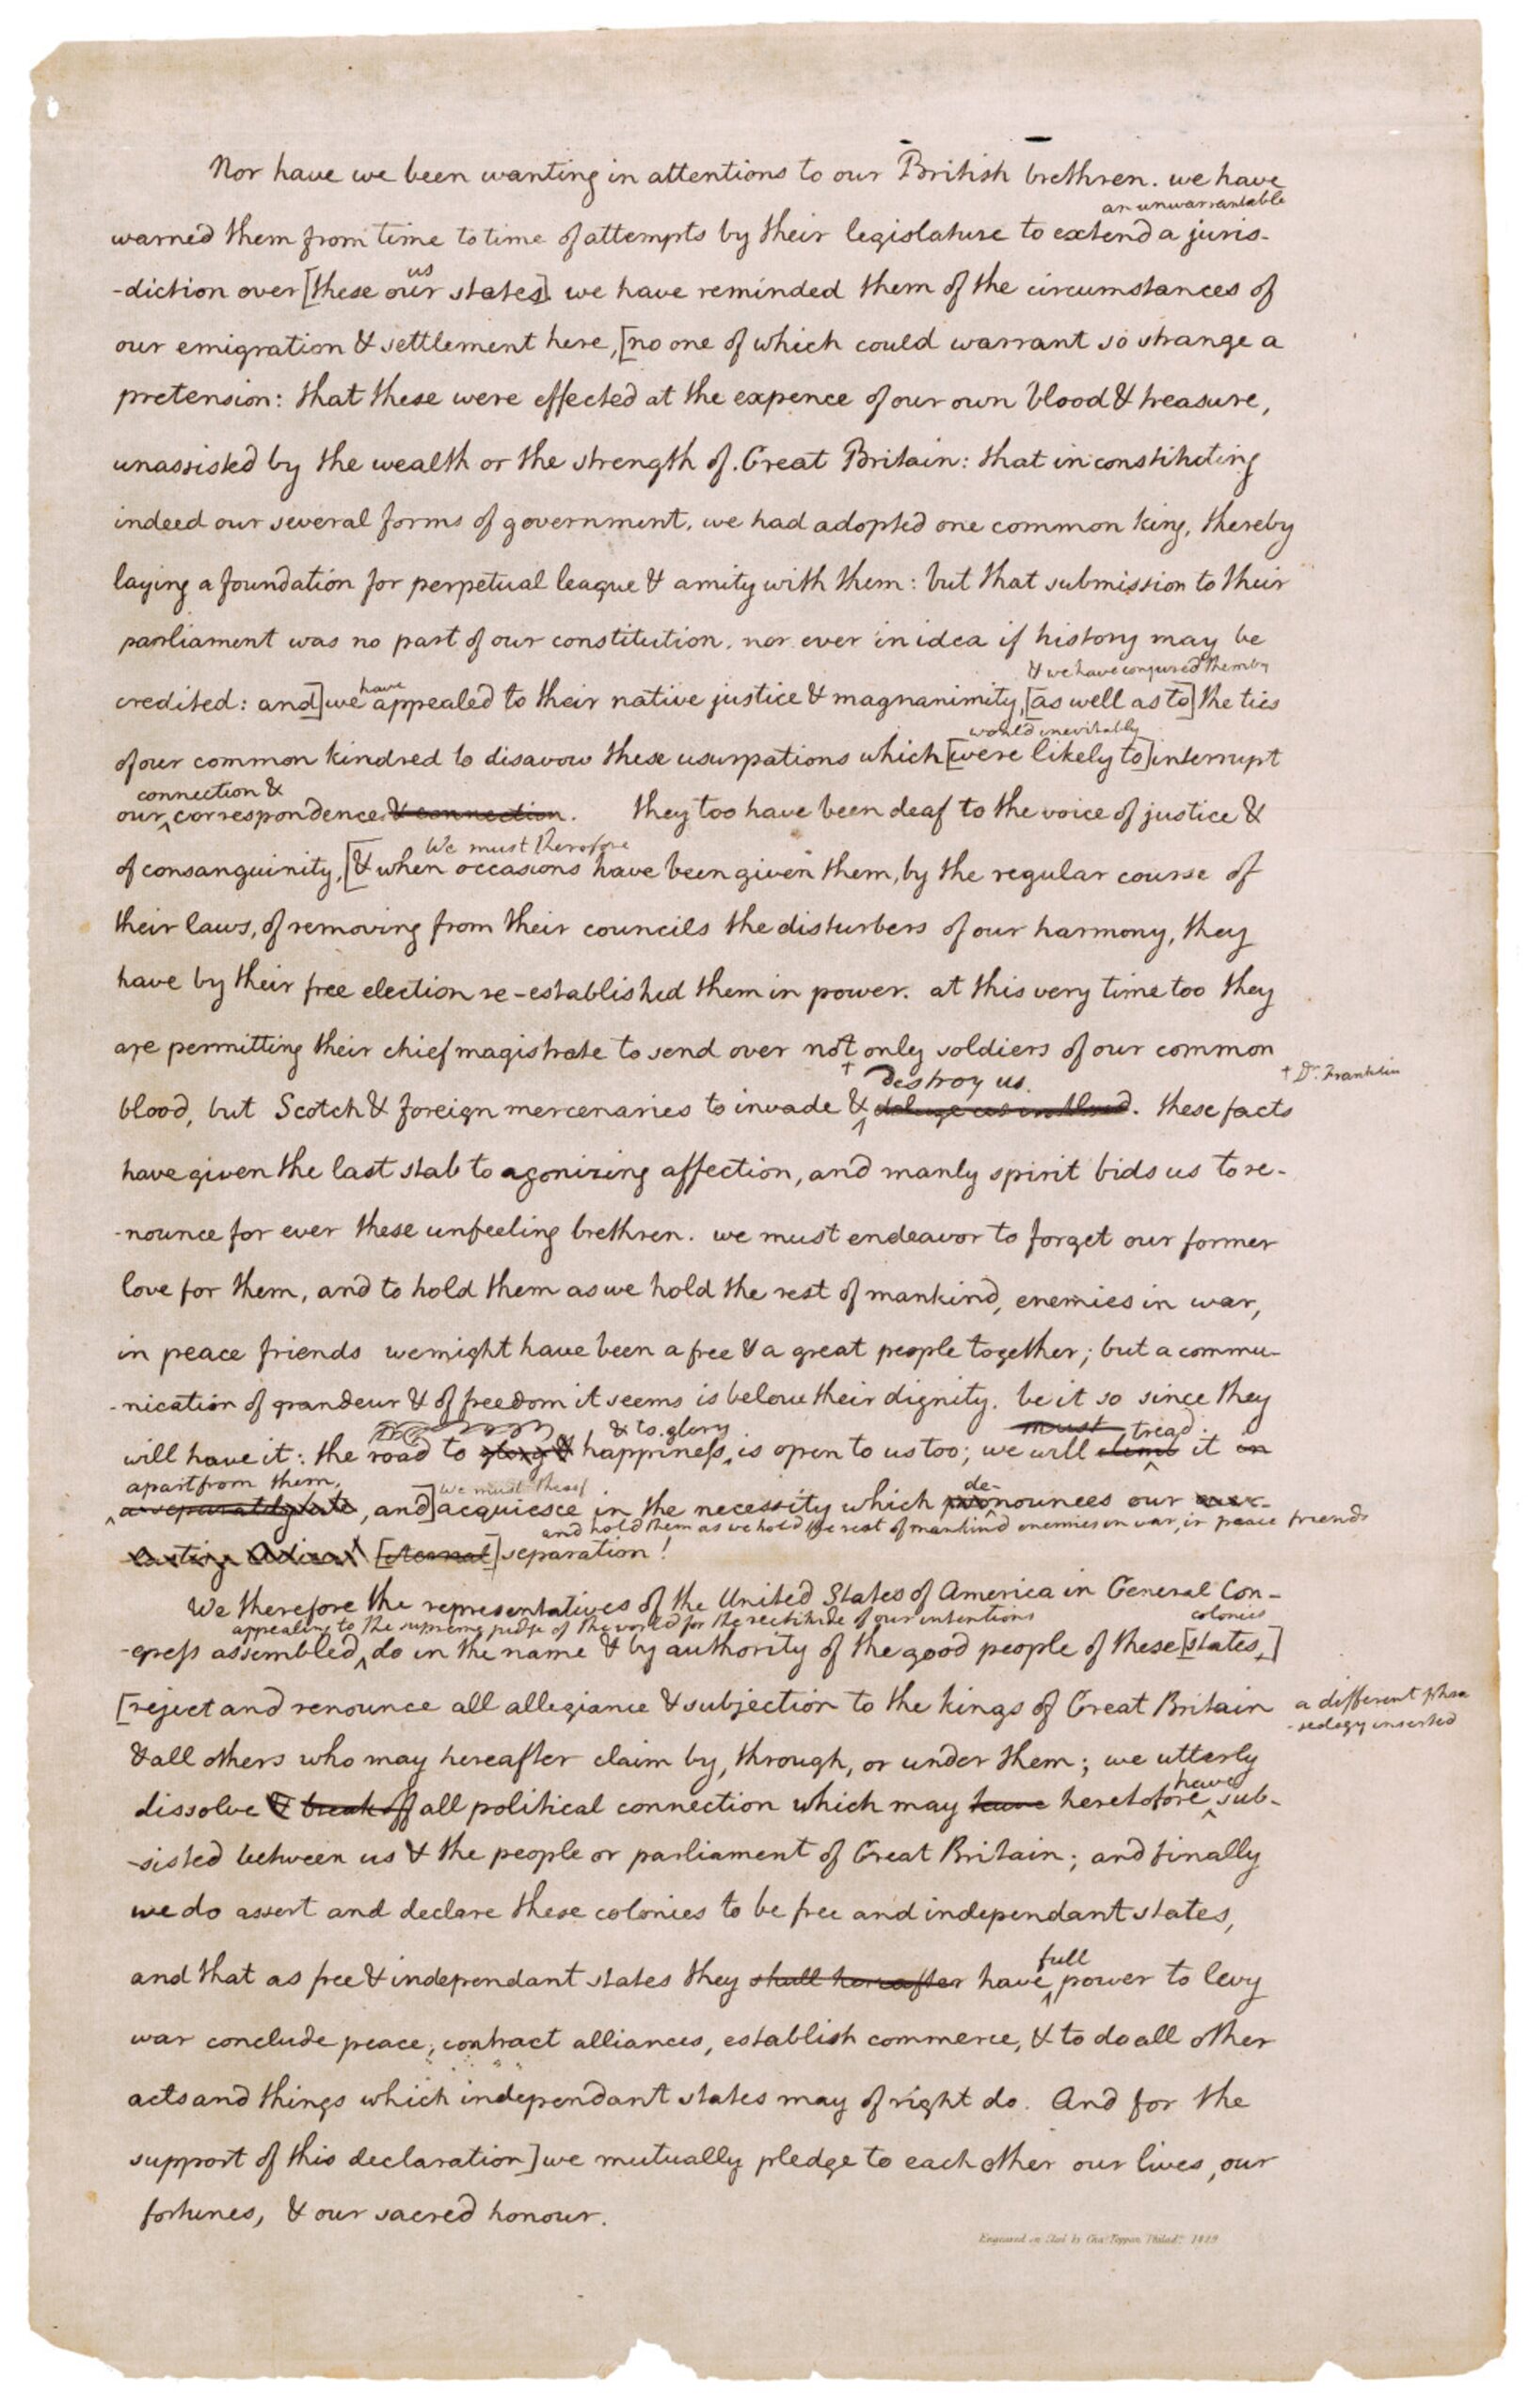 Nor have we been wanting in attentions to our British brethren. we have
an unwarrantable
warned them from time to time of attempts by their legislature to extend a juris-
us
-diction over [these our states]. we have reminded them of the circumstances of
our emigration & settlement here, [no one of which could warrant so strange a
pretension: that these were effected at the expence of our own blood & treasure,
unassisted by the wealth or the strength of Great Britain: that in constituting
indeed our several forms of government, we had adopted one common king, thereby
laying a foundation for perpetual league & amity with them: but that submission to their
parliament was no part of our constitution, nor ever in idea if history may be
& we have conjured them by
have
credited: and] we appealed to their native justice & magnanimity, [as well as to] the ties
would inevitably
of our common kindred to disavow these usurpations which [were likely to] interrupt
connection &
our correspondence & connection. they too have been deaf to the voice of justice &
We must therefore
of consanguinity, [& when occasions have been given them, by the regular course of
their laws, of removing from their councils the disturbers of our harmony, they
have by their free election re-established them in power. at this very time too they
are permitting their chief magistrate to send over not only soldiers of our common
destroy us
† Dr. Franklin
blood, but Scotch & foreign mercenaries to invade & deluge us in blood. these facts
have given the last stab to agonizing affection, and manly spirit bids us to re-
-nounce for ever these unfeeling brethren. we must endeavor to forget our former
love for them, and to hold them as we hold the rest of mankind, enemies in war,
in peace friends we might have been a free & a great people together; but a commu-
-nication of grandeur & of freedom it seems is below their dignity. be it so since they
& to glory must tread
will have it: the road to glory & happiness, is open to us too; we will climb it in
apart from them, we must theref de-
a separately state, and] acquiesce in the necessity which pronounces our ever-
and hold them as we hold the rest of mankind enemies in war, in peace friends
lasting Adieu! [eternal] separation!
We therefore the representatives of the United States of America in General Con-
appealing to the supreme judge of the world for the rectitude of our intentions colonies
-gress assembled, do in the name & by authority of the good people of these [states,]
[reject and renounce all allegiance & subjection to the kings of Great Britain
a different phra
-seology inserted
& all others who may hereafter claim by, through, or under them; we utterly
have
dissolve & break off all political connection which may have heretofore sub-
-sisted between us & the people or parliament of Great Britain; and finally
we do assert and declare these colonies to be free and independant states,
full
and that as free & independant states they shall hereafter have power to levy
war conclude peace, contract alliances, establish commerce, & to do all other
acts and things which independant states may of right do. And for the
support of this declaration] we mutually pledge to each other our lives, our
fortunes, & our sacred honour.
Engraved on Steel by Chas. Toppan Philada. 1819